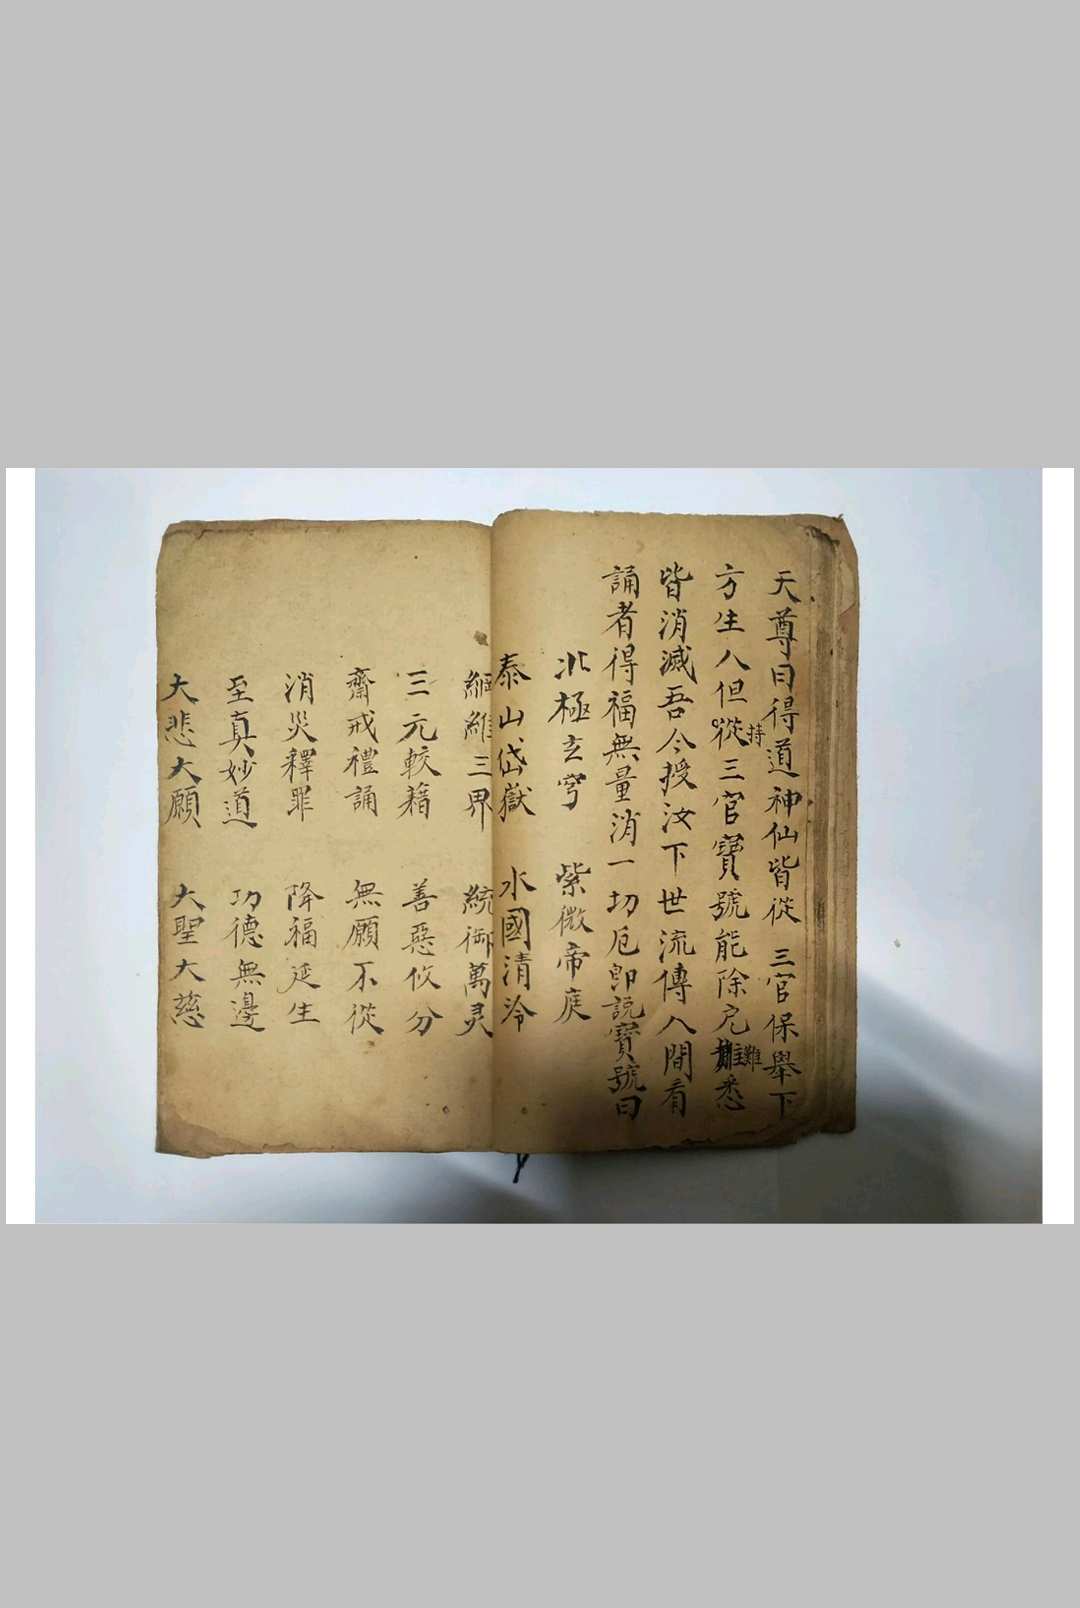 天尊曰得道神仙皆從三官保舉下
方生人但從持三官寶號能除厄難悉
皆消滅吾今授汝下世流傳人間看
誦者得福無量消一切厄即説寶號曰
北極玄穹 紫微帝庭
泰山岱嶽 水國清泠
綑維三界 統御萬灵
三元較籍 善惡攸分
齋戒禮誦 無願不從
消災釋罪 降福延生
至真妙道 功德無邊
大悲大願 大聖大慈